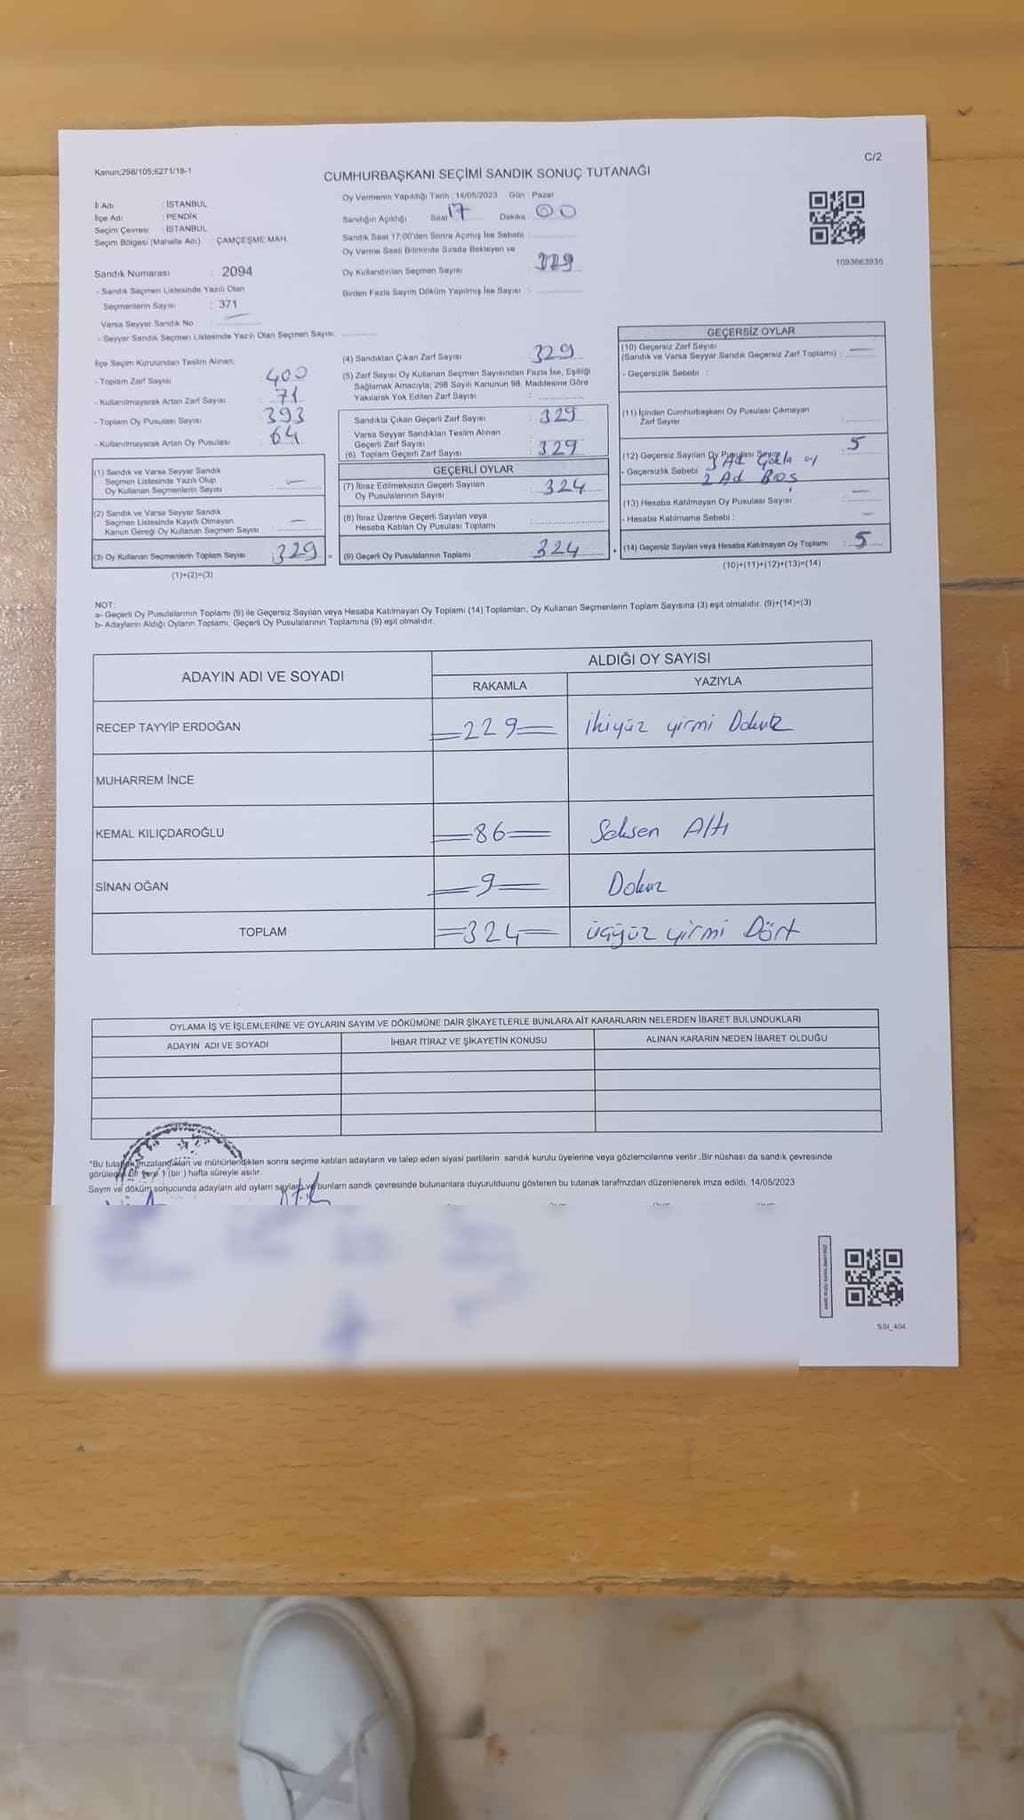 Kanun;298/105;6271/18-1
C/2
CUMHURBAŞKANI SEÇİMİ SANDIK SONUÇ TUTANAĞI
İl Adı : İSTANBUL
İlçe Adı : PENDİK
Seçim Çevresi : İSTANBUL
Seçim Bölgesi (Mahalle Adı) : ÇAMÇEŞME MAH.
Sandık Numarası : 2094
- Sandık Seçmen Listesinde Yazılı Olan
Seçmenlerin Sayısı : 371
Varsa Seyyar Sandık No :
- Seyyar Sandık Seçmen Listesinde Yazılı Olan Seçmen Sayısı
Oy Vermenin Yapıldığı Tarih : 14/05/2023 Gün : Pazar
Sandığın Açıldığı Saat 17 Dakika 00
Sandık Saat 17:00'den Sonra Açılmış İse Sebebi
Oy Verme Saati Bitiminde Sırada Bekleyen ve
Oy Kullandırılan Seçmen Sayısı 329
Birden Fazla Sayım Döküm Yapılmış İse Sayısı :
1093663935
İlçe Seçim Kurulundan Teslim Alınan;
- Toplam Zarf Sayısı 400
- Kullanılmayarak Artan Zarf Sayısı 71
- Toplam Oy Pusulası Sayısı 393
- Kullanılmayarak Artan Oy Pusulası 64
(1) Sandık ve Varsa Seyyar Sandık
Seçmen Listesinde Yazılı Olup
Oy Kullanan Seçmenlerin Sayısı —
(2) Sandık ve Varsa Seyyar Sandık
Seçmen Listesinde Kayıtlı Olmayan
Kanun Gereği Oy Kullanan Seçmen Sayısı —
(3) Oy Kullanan Seçmenlerin Toplam Sayısı : 329
(1)+(2)=(3)
(4) Sandıktan Çıkan Zarf Sayısı 329
(5) Zarf Sayısı Oy Kullanan Seçmen Sayısından Fazla İse, Eşitliği
Sağlamak Amacıyla; 298 Sayılı Kanunun 98. Maddesine Göre
Yakılarak Yok Edilen Zarf Sayısı :
Sandıkta Çıkan Geçerli Zarf Sayısı : 329
Varsa Seyyar Sandıktan Teslim Alınan
Geçerli Zarf Sayısı
(6) Toplam Geçerli Zarf Sayısı : 329
GEÇERLİ OYLAR
(7) İtiraz Edilmeksizin Geçerli Sayılan
Oy Pusulalarının Sayısı : 324
(8) İtiraz Üzerine Geçerli Sayılan veya
Hesaba Katılan Oy Pusulası Toplamı
(9) Geçerli Oy Pusulalarının Toplamı 324
GEÇERSİZ OYLAR
(10) Geçersiz Zarf Sayısı
(Sandık ve Varsa Seyyar Sandık Geçersiz Zarf Toplamı) : —
- Geçersizlik Sebebi :
(11) İçinden Cumhurbaşkanı Oy Pusulası Çıkmayan
Zarf Sayısı
(12) Geçersiz Sayılan Oy Pusulası Sayısı 5
- Geçersizlik Sebebi 3 Ad oy
2 Ad Boş
(13) Hesaba Katılmayan Oy Pusulası Sayısı —
- Hesaba Katılmama Sebebi : —
(14) Geçersiz Sayılan veya Hesaba Katılmayan Oy Toplamı : 5
(10)+(11)+(12)+(13)=(14)
NOT:
a- Geçerli Oy Pusulalarının Toplamı (9) ile Geçersiz Sayılan veya Hesaba Katılmayan Oy Toplamı (14) Toplamları, Oy Kullanan Seçmenlerin Toplam Sayısına (3) eşit olmalıdır. (9)+(14)=(3)
b- Adayların Aldığı Oyların Toplamı, Geçerli Oy Pusulalarının Toplamına (9) eşit olmalıdır.
ADAYIN ADI VE SOYADI
ALDIĞI OY SAYISI
RAKAMLA YAZIYLA
RECEP TAYYİP ERDOĞAN =229= ikiyüz yirmi Dokuz
MUHARREM İNCE
KEMAL KILIÇDAROĞLU =86= Seksen Altı
SİNAN OĞAN =9= Dokuz
TOPLAM =324= üçyüz yirmi Dört
OYLAMA İŞ VE İŞLEMLERİNE VE OYLARIN SAYIM VE DÖKÜMÜNE DAİR ŞİKAYETLERLE BUNLARA AİT KARARLARIN NELERDEN İBARET BULUNDUKLARI
ADAYIN ADI VE SOYADI İHBAR İTİRAZ VE ŞİKAYETİN KONUSU ALINAN KARARIN NEDEN İBARET OLDUĞU
*Bu imzalandıktan ve mühürlendikten sonra seçime katılan adayların ve talep eden siyasi partilerin sandık kurulu üyelerine veya gözlemcilerine verilir .Bir nüshası da sandık çevresinde
bir yere 1 (bir ) hafta süreyle asılır.
Sayım ve döküm sonucunda adayların ald oyların bunların sandk çevresinde bulunanlara duyurulduunu gösteren bu tutanak tarafmzdan düzenlenerek imza edildi. 14/05/2023